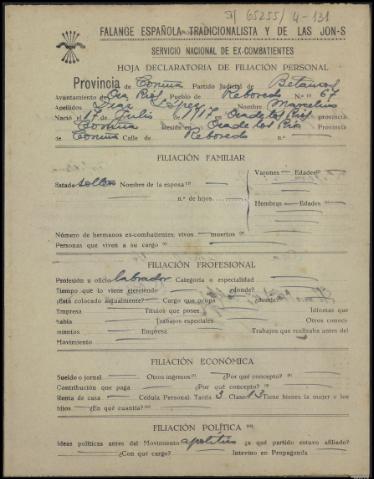 5/ 65255/4-131
FALANGE ESPAÑOLA TRADICIONALISTA Y DE LAS JON-S
SERVICIO NACIONAL DE EX-COMBATIENTES
HOJA DECLARATORIA DE FILIACIÓN PERSONAL
Provincia de Coruña Partido Judicial de Betanzos
Ayuntamiento de Oza Rios Pueblo de Reboredo N.º 67
Apellidos Diaz López Nombre Marcelino
Nació el 17 de Julio de 1917 en Oza de los Rios provincia
Coruña Reside en Oza de los Rios
de Coruña Calle de Reboredo
FILIACIÓN FAMILIAR
Varones Edades
Estado soltero Nombre de la esposa
n.º de hijos
Hembras Edades
Número de hermanos ex-combatientes, vivos muertos
Personas que viven a su cargo
FILIACIÓN PROFESIONAL
Profesión u oficio labrador Categoría o especialidad
Tiempo que lo viene ejerciendo ¿donde?
¿Está colocado actualmente? Cargo que ocupa ¿donde?
Empresa Títulos que posee Idiomas que
habla Trabajos especiales Otros conoci-
mientos Empresa Trabajos que realizaba antes del
Movimiento
FILIACIÓN ECONÓMICA
Sueldo o jornal Otros ingresos ¿Por qué concepto?
Contribución que paga ¿Por qué concepto?
Renta de casa Cédula Personal Tarifa 3 Clase 13 Tiene bienes la mujer o los
hijos ¿En qué cuantía?
FILIACIÓN POLÍTICA
Ideas políticas antes del Movimiento apolítico ¿a qué partido estuvo afiliado?
¿Con qué cargo? Intervino en Propaganda